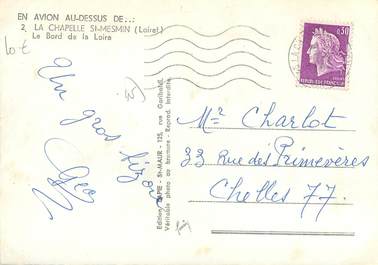 EN AVION AU-DESSUS DE...
2. LA CHAPELLE St-MESMIN (Loiret)
Le Bord de la Loire
10 €
Un gros
Geo
Edition LAPIE - St-MAUR - 125, rue Garibaldi
Véritable photo au bromure - Reprod. Interdite
0,50
REPUBLIQUE FRANÇAISE
Mr Charlot
33 Rue des Primevères
Chelles 77.